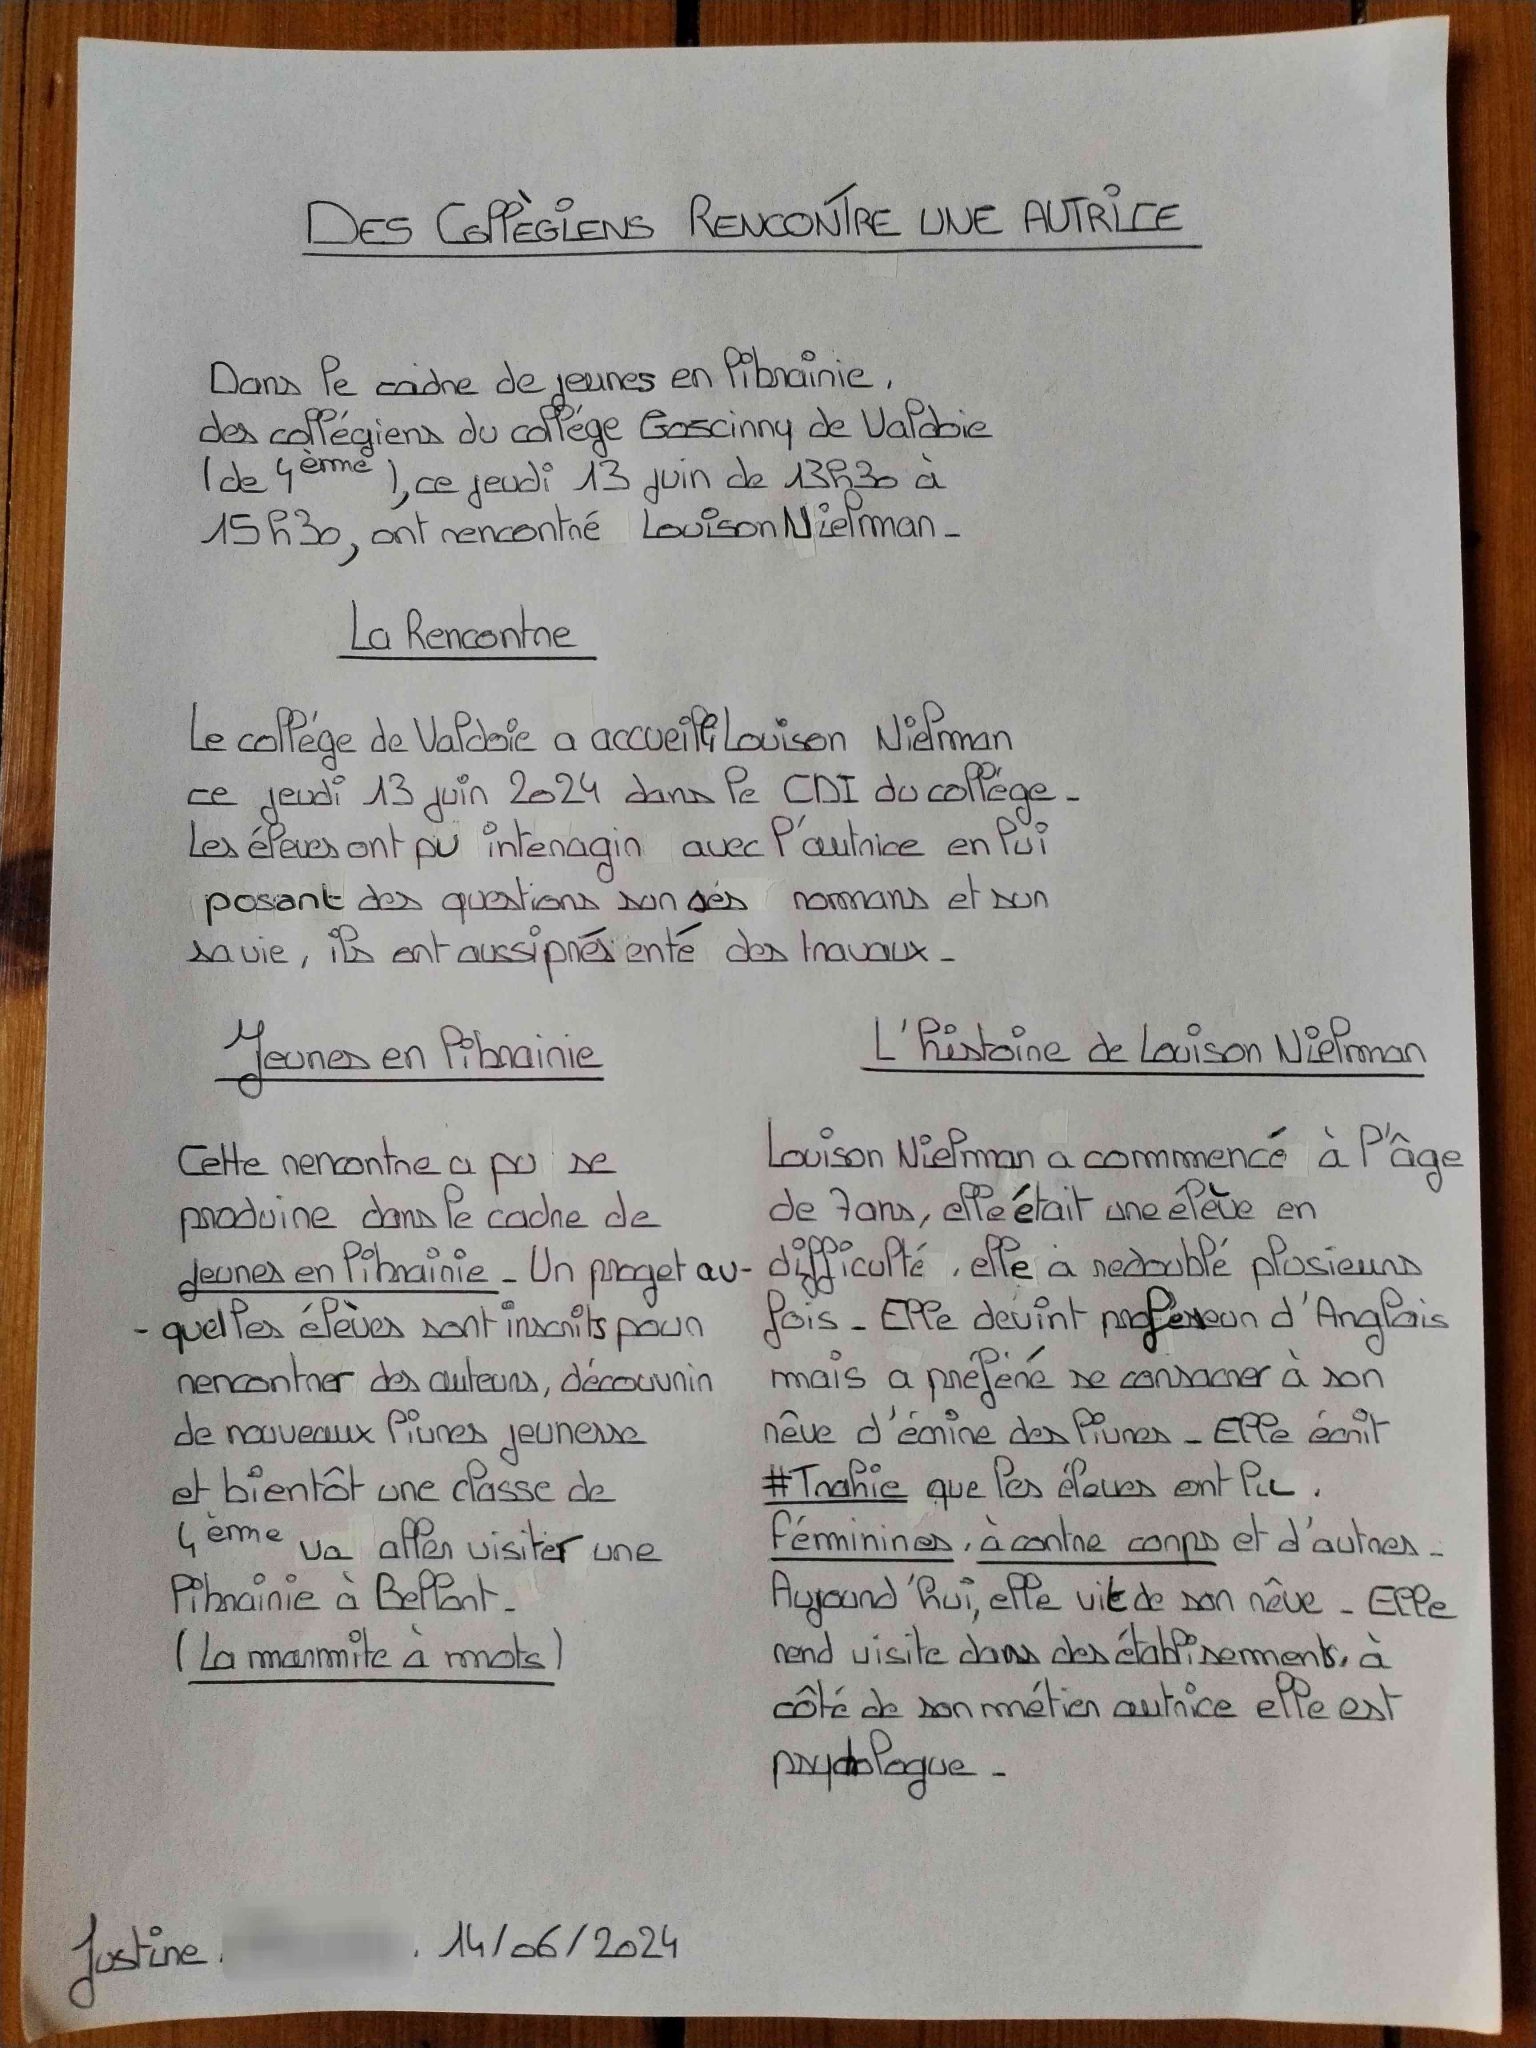 DES COllÈGIENS RENCONTRE UNE AUTRICE
Dans le cadre de jeunes en librairie,
des collégiens du collége Goscinny de Valdoie
(de 4ème), ce jeudi 13 juin de 13h30 à
15h30, ont rencontré Louison Nielman -
La Rencontre
Le collége de Valdoie a accueilli Louison Nielman
ce jeudi 13 juin 2024 dans le CDI du collége -
Les éleves ont pu interagir avec l'autrice en lui
posant des questions sur sés romans et sur
sa vie, ils ont aussi présenté des travaux -
Jeunes en librairie
Cette rencontre a pu se
produire dans le cadre de
jeunes en librairie - Un projet au-
- quel les élèves sont inscrits pour
rencontrer des auteurs, découvrir
de nouveaux livres jeunesse
et bientôt une classe de
4ème va aller visiter une
librairie à Belfort -
(La marmite à mots)
L'histoire de Louison Nielman
Louison Nielman a commencé à l'âge
de 7 ans, elle était une élève en
difficulté, elle a redoublé plusieurs
fois - Elle devint professeur d'Anglais
mais a préféré se consacrer à son
rêve d'écrire des livres - Elle écrit
#Trahie que les éleves ont lu,
féminines, à contre corps et d'autres -
Aujourd'hui, elle vit de son rêve - Elle
rend visite dans des établisements, à
côté de son métier autrice elle est
psychologue -
Justine. . 14/06/2024